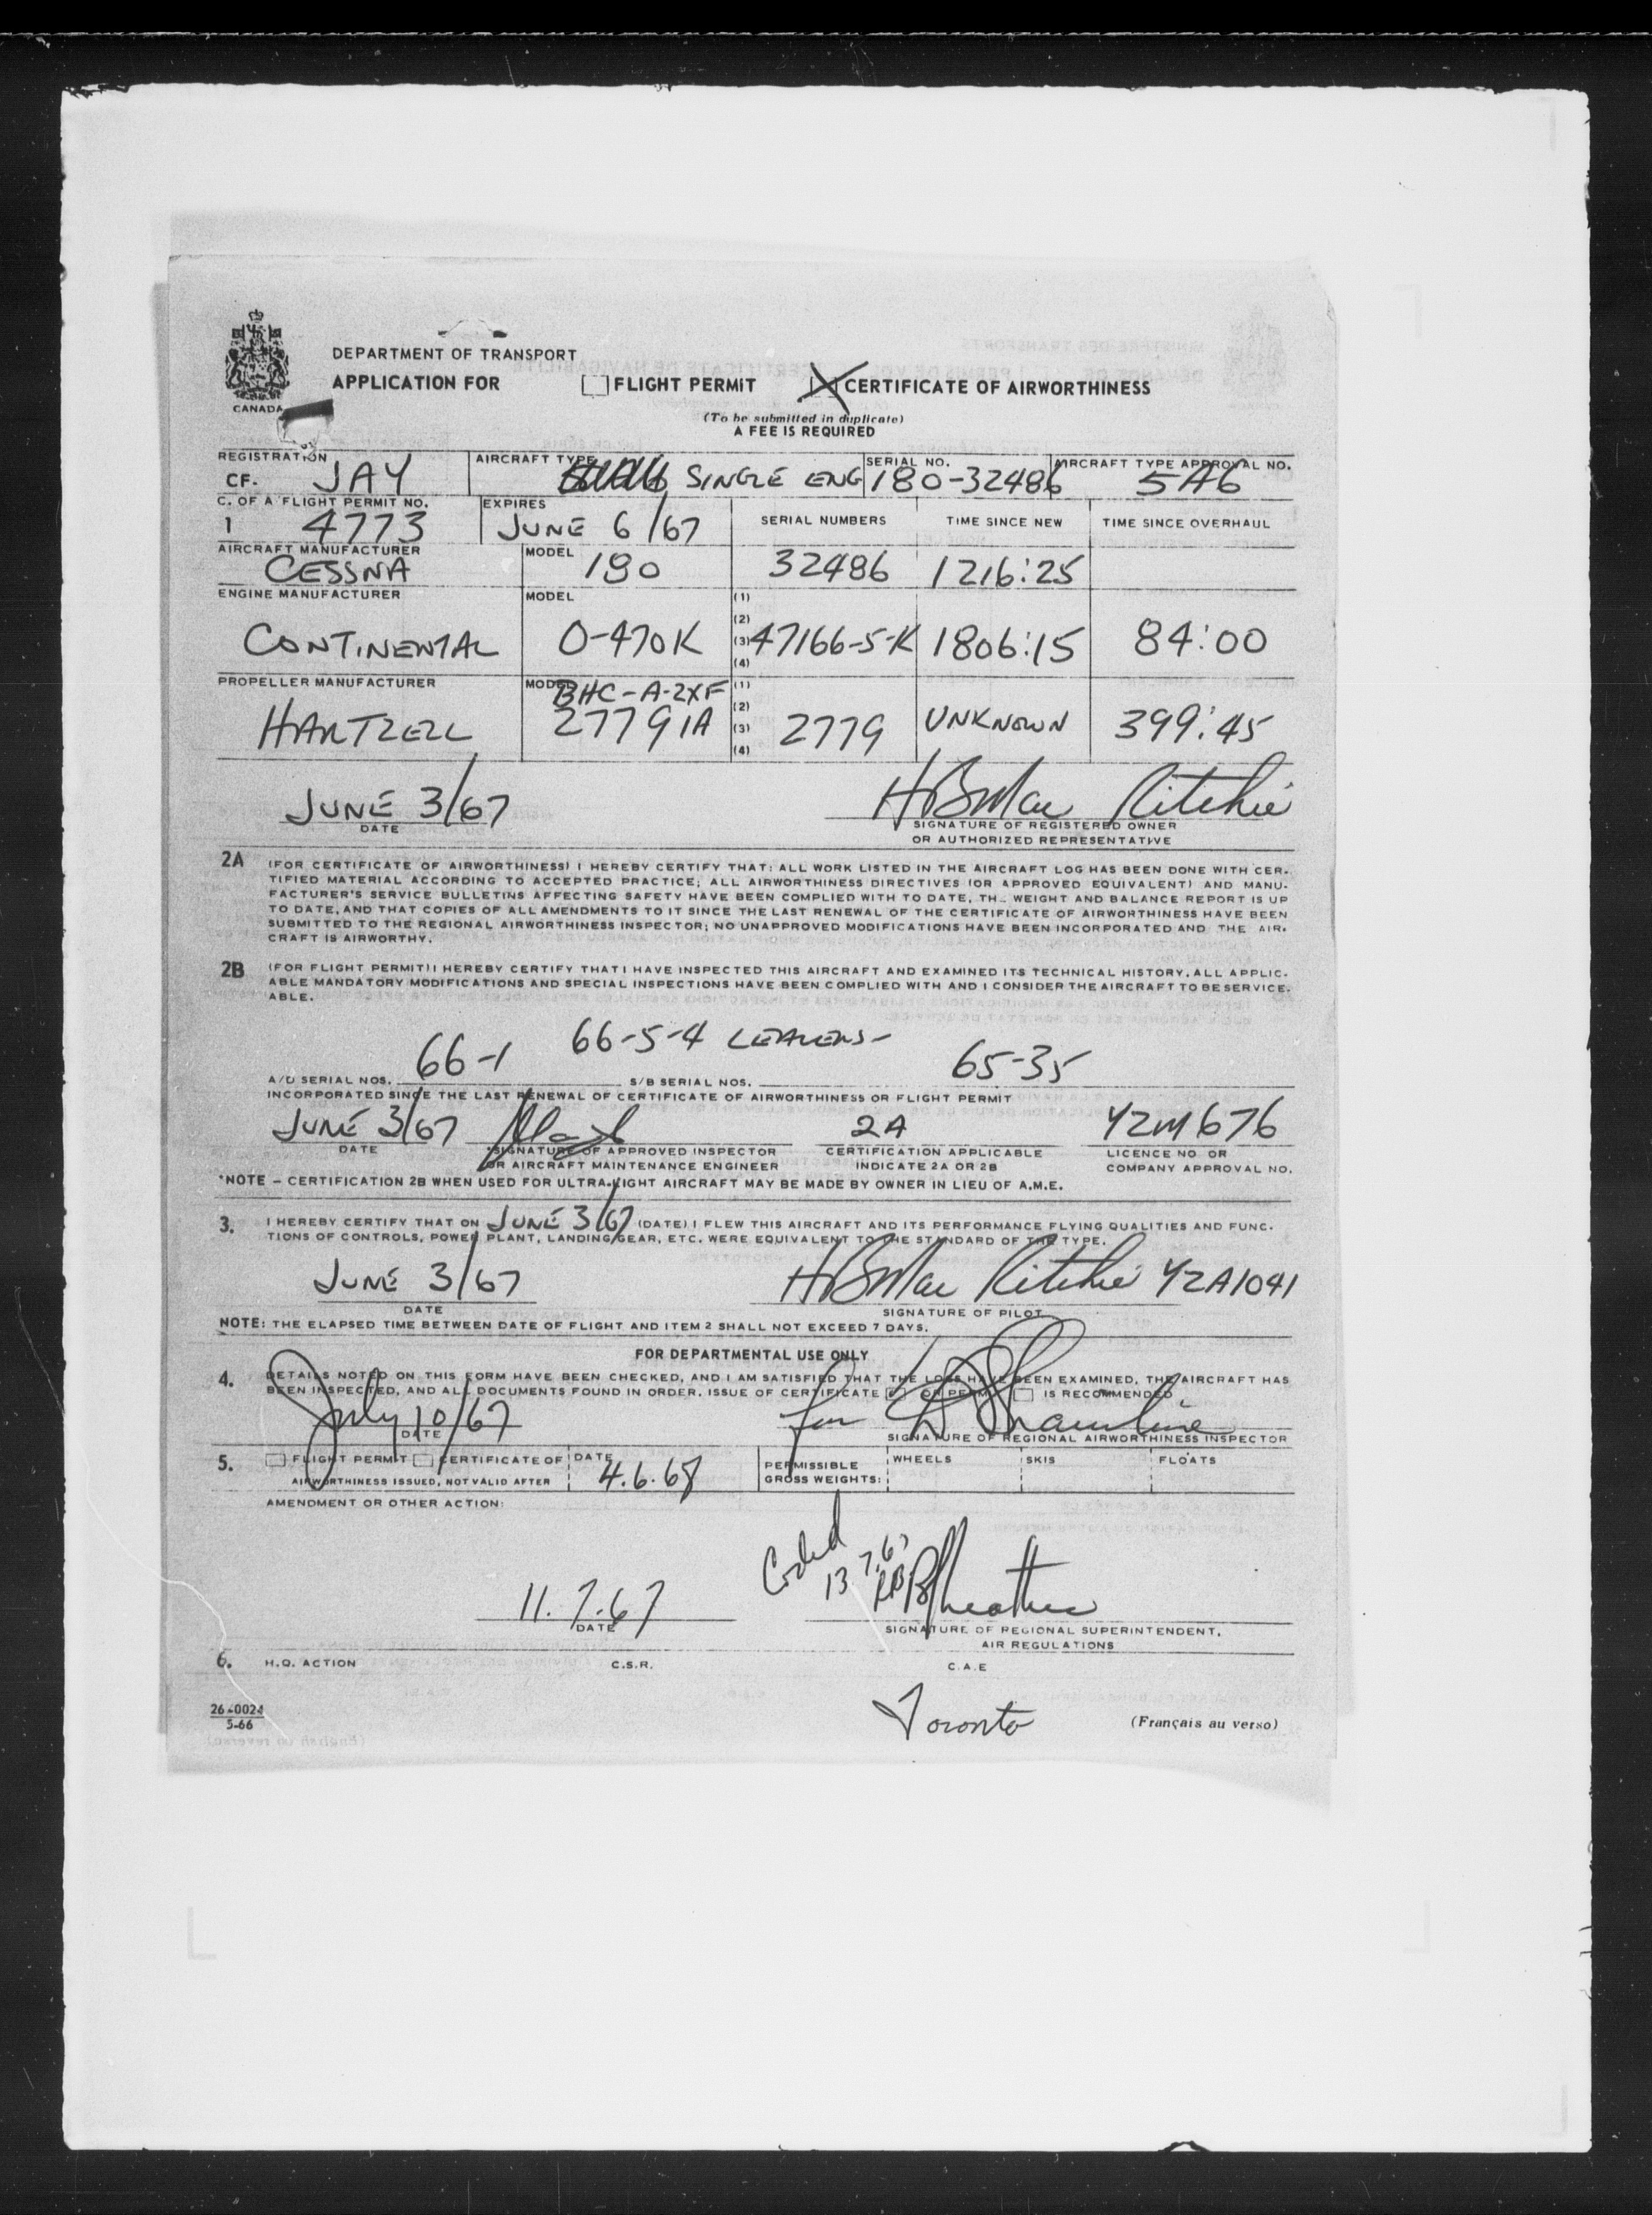 CANADA
DEPARTMENT OF TRANSPORT
APPLICATION FOR FLIGHT PERMIT CERTIFICATE OF AIRWORTHINESS
(To be submitted in duplicate)
A FEE IS REQUIRED
REGISTRATION AIRCRAFT TYPE SERIAL NO. AIRCRAFT TYPE APPROVAL NO.
CF. JAY SINGLE ENG 180-32486 5A6
C. OF A FLIGHT PERMIT NO. EXPIRES SERIAL NUMBERS TIME SINCE NEW TIME SINCE OVERHAUL
1 4773 JUNE 6/67
AIRCRAFT MANUFACTURER MODEL
CESSNA 180 32486 1216:25
ENGINE MANUFACTURER MODEL (1)
(2)
CONTINENTAL O-470K (3) 47166-5-K 1806:15 84:00
(4)
PROPELLER MANUFACTURER MODEL BHC-A-2XF (1)
(2)
HARTZELL 27791A (3) 2779 UNKNOWN 399:45
(4)
JUNE 3/67 HBMac Ritchie
DATE SIGNATURE OF REGISTERED OWNER
OR AUTHORIZED REPRESENTATIVE
2A (FOR CERTIFICATE OF AIRWORTHINESS) I HEREBY CERTIFY THAT: ALL WORK LISTED IN THE AIRCRAFT LOG HAS BEEN DONE WITH CER-
TIFIED MATERIAL ACCORDING TO ACCEPTED PRACTICE; ALL AIRWORTHINESS DIRECTIVES (OR APPROVED EQUIVALENT) AND MANU-
FACTURER'S SERVICE BULLETINS AFFECTING SAFETY HAVE BEEN COMPLIED WITH TO DATE, TH_ WEIGHT AND BALANCE REPORT IS UP
TO DATE, AND THAT COPIES OF ALL AMENDMENTS TO IT SINCE THE LAST RENEWAL OF THE CERTIFICATE OF AIRWORTHINESS HAVE BEEN
SUBMITTED TO THE REGIONAL AIRWORTHINESS INSPECTOR; NO UNAPPROVED MODIFICATIONS HAVE BEEN INCORPORATED AND THE AIR-
CRAFT IS AIRWORTHY.
2B (FOR FLIGHT PERMIT) I HEREBY CERTIFY THAT I HAVE INSPECTED THIS AIRCRAFT AND EXAMINED ITS TECHNICAL HISTORY. ALL APPLIC-
ABLE MANDATORY MODIFICATIONS AND SPECIAL INSPECTIONS HAVE BEEN COMPLIED WITH AND I CONSIDER THE AIRCRAFT TO BE SERVICE-
ABLE.
66-5-4 LEAVENS-
66-1 65-35
A/D SERIAL NOS. S/B SERIAL NOS.
INCORPORATED SINCE THE LAST RENEWAL OF CERTIFICATE OF AIRWORTHINESS OR FLIGHT PERMIT
JUNE 3/67 2A YZM676
DATE *SIGNATURE OF APPROVED INSPECTOR CERTIFICATION APPLICABLE LICENCE NO. OR
OR AIRCRAFT MAINTENANCE ENGINEER INDICATE 2A OR 2B COMPANY APPROVAL NO.
*NOTE – CERTIFICATION 2B WHEN USED FOR ULTRA-LIGHT AIRCRAFT MAY BE MADE BY OWNER IN LIEU OF A.M.E.
3. I HEREBY CERTIFY THAT ON JUNE 3/67 (DATE) I FLEW THIS AIRCRAFT AND ITS PERFORMANCE FLYING QUALITIES AND FUNC-
TIONS OF CONTROLS, POWER PLANT, LANDING GEAR, ETC. WERE EQUIVALENT TO THE STANDARD OF THE TYPE.
JUNE 3/67 HBMac Ritchie YZA1041
DATE SIGNATURE OF PILOT
NOTE: THE ELAPSED TIME BETWEEN DATE OF FLIGHT AND ITEM 2 SHALL NOT EXCEED 7 DAYS.
FOR DEPARTMENTAL USE ONLY
4. DETAILS NOTED ON THIS FORM HAVE BEEN CHECKED, AND I AM SATISFIED THAT THE LOGS HAVE BEEN EXAMINED, THE AIRCRAFT HAS
BEEN INSPECTED, AND ALL DOCUMENTS FOUND IN ORDER. ISSUE OF CERTIFICATE OR PERMIT IS RECOMMENDED
July 10/67 for
DATE SIGNATURE OF REGIONAL AIRWORTHINESS INSPECTOR
5. FLIGHT PERMIT CERTIFICATE OF DATE PERMISSIBLE WHEELS SKIS FLOATS
AIRWORTHINESS ISSUED, NOT VALID AFTER 4.6.68 GROSS WEIGHTS:
AMENDMENT OR OTHER ACTION:
Coded
13.7.67
11.7.67
DATE SIGNATURE OF REGIONAL SUPERINTENDENT,
AIR REGULATIONS
6. H.Q. ACTION C.S.R. C.A.E
Toronto
26-0024
5-66
(Français au verso)